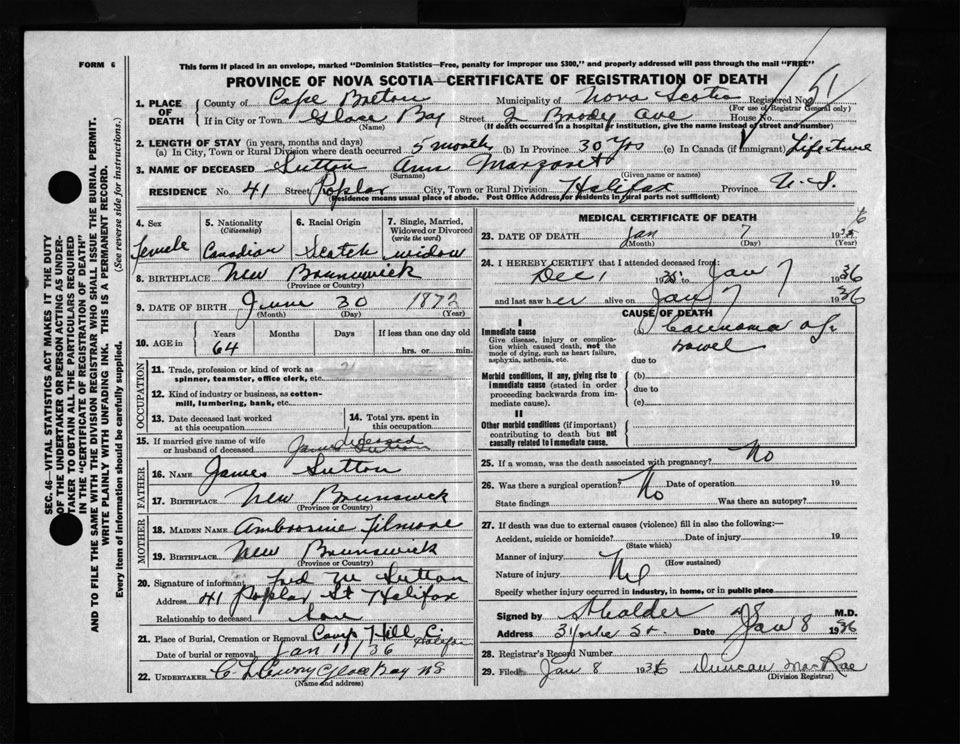 FORM 6
This form if placed in an envelope, marked "Dominion Statistics—Free, penalty for improper use $300," and properly addressed will pass through the mail "FREE"
PROVINCE OF NOVA SCOTIA—CERTIFICATE OF REGISTRATION OF DEATH
1. PLACE OF DEATH County of Cape Breton Municipality of Nova Scotia Registered No. 51
(For use of Registrar General only)
If in City or Town Glace Bay Street 2 Brody Ave House No.
(Name) (If death occurred in a hospital or institution, give the name instead of street and number)
2. LENGTH OF STAY (in years, months and days)
(a) In City, Town or Rural Division where death occurred 5 months (b) In Province 30 Yrs (c) In Canada (if immigrant) Lifetime
3. NAME OF DECEASED Sutton Ann Margaret
(Surname) (Given name or names)
RESIDENCE No. 41 Street Poplar City, Town or Rural Division Halifax Province N.S.
(Residence means usual place of abode. Post Office Address for residents in rural parts not sufficient)
4. Sex 5. Nationality (Citizenship) 6. Racial Origin 7. Single, Married, Widowed or Divorced (write the word)
Female Canadian Scotch widow
8. BIRTHPLACE New Brunswick
(Province or Country)
9. DATE OF BIRTH June 30 1872
(Month) (Day) (Year)
10. AGE in Years Months Days If less than one day old
64 hrs. or min.
OCCUPATION
11. Trade, profession or kind of work as spinner, teamster, office clerk, etc.
12. Kind of industry or business, as cotton-mill, lumbering, bank, etc.
13. Date deceased last worked at this occupation 14. Total yrs. spent in this occupation
15. If married give name of wife or husband of deceased James Sutton deceased
FATHER
16. NAME James Sutton
17. BIRTHPLACE New Brunswick
(Province or Country)
MOTHER
18. MAIDEN NAME Ambrosine Filmore
19. BIRTHPLACE New Brunswick
(Province or Country)
20. Signature of informant Fred M Sutton
Address 41 Poplar St Halifax
Relationship to deceased Son
21. Place of Burial, Cremation or Removal Camp Hill C. Halifax
Date of burial or removal Jan 11/36
22. UNDERTAKER Glace Bay NS
(Name and address)
MEDICAL CERTIFICATE OF DEATH
23. DATE OF DEATH Jan 7 1936
(Month) (Day) (Year)
24. I HEREBY CERTIFY that I attended deceased from:
Dec 1 1935 to Jan 7 1936
and last saw her alive on Jan 7 1936
CAUSE OF DEATH
I
Immediate cause
Give disease, injury or complication which caused death, not the mode of dying, such as heart failure, asphyxia, asthenia, etc.
(a) Carcinoma of bowel
due to
Morbid conditions, if any, giving rise to immediate cause (stated in order proceeding backwards from immediate cause).
(b)
due to
(c)
II
Other morbid conditions (if important) contributing to death but not causally related to immediate cause.
25. If a woman, was the death associated with pregnancy? No
26. Was there a surgical operation? No Date of operation 19
State findings Was there an autopsy?
27. If death was due to external causes (violence) fill in also the following:—
Accident, suicide or homicide? Date of injury 19
(State which)
Manner of injury
(How sustained)
Nature of injury Nil
Specify whether injury occurred in industry, in home, or in public place
Signed by M.D.
Address St. Date Jan 8 1936
28. Registrar's Record Number
29. Filed Jan 8 1936 Duncan MacRae
(Division Registrar)
SEC. 46—VITAL STATISTICS ACT MAKES IT THE DUTY
OF THE UNDERTAKER OR PERSON ACTING AS UNDER-
TAKER TO OBTAIN ALL THE PARTICULARS REQUIRED
IN THE "CERTIFICATE OF REGISTRATION OF DEATH"
AND TO FILE THE SAME WITH THE DIVISION REGISTRAR WHO SHALL ISSUE THE BURIAL PERMIT.
WRITE PLAINLY WITH UNFADING INK. THIS IS A PERMANENT RECORD.
Every item of information should be carefully supplied. (See reverse side for instructions.)